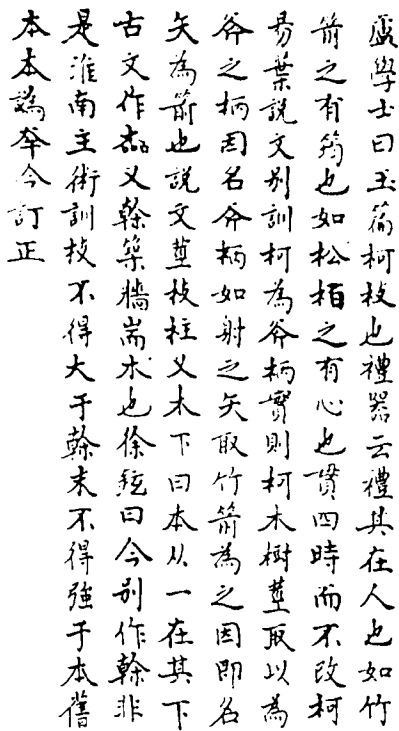 盧學士曰玉篇柯枝也禮器云禮其在人也如竹
箭之有筠也如松栢之有心也貫四時而不改柯
易葉說文别訓柯為斧柄實則柯木樹莖取以為
斧之柄因名斧柄如射之矢取竹箭為之因即名
矢為箭也說文莖枝柱又木下曰本从一在其下
古文作又榦築牆耑木也徐鉉曰今别作幹非
是淮南主術訓枝不得大于榦末不得強于本舊
本本譌夲今訂正